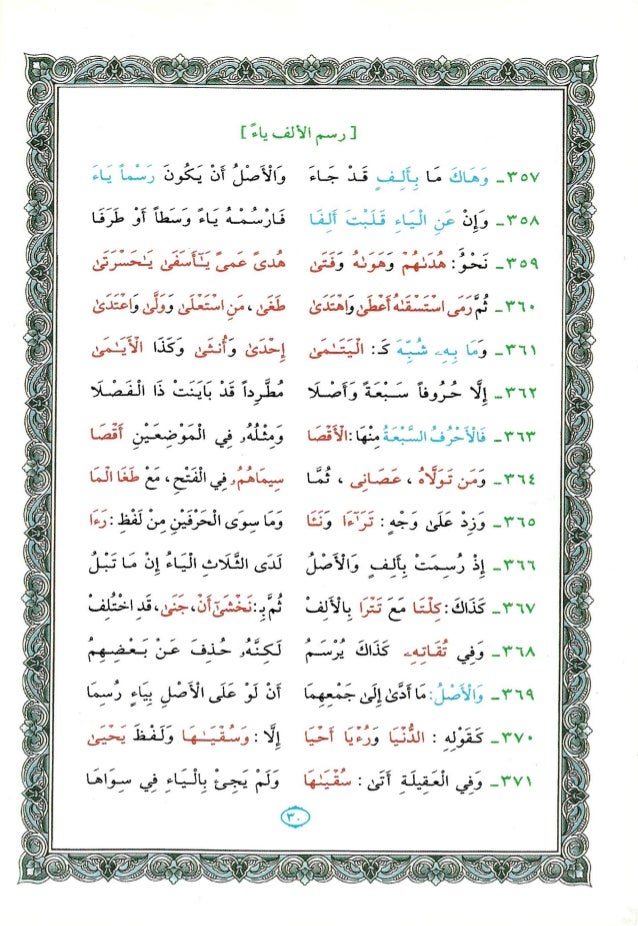 [ رسم الألف ياءً ]
٣٥٧ - وَهَاكَ مَا بِأَلِفٍ قَدْ جَاءَ وَالْأَصْلُ أَنْ يَكُونَ رَسْماً يَاءَ
٣٥٨ - وَإِنْ عَنِ الْيَاءِ قَلَبْتَ أَلِفَا فَارْسُمْهُ يَاءً وَسَطاً أَوْ طَرَفَا
٣٥٩ - نَحْوُ : هُدَىٰهُمْ وَهَوَىٰهُ وَفَتَىٰ هُدىً عَمىً يَـٰٓأَسَفَىٰ يَـٰحَسْرَتَىٰ
٣٦٠ - ثُمَّ رَمَى اسْتَسْقَىٰهُ أَعْطَىٰ وَاهْتَدَىٰ طَغَىٰ ، مَنِ اسْتَعْلَىٰ وَوَلَّىٰ وَاعْتَدَىٰ
٣٦١ - وَمَا بِهِۦ شُبِّهَ كَـ : الْيَتَـٰمَىٰ إِحْدَىٰ وَأُنثَىٰ وَكَذَا الْأَيَـٰمَىٰ
٣٦٢ - إِلَّا حُرُوفاً سَبْعَةً وَأَصْلَا مُطَّرِداً قَدْ بَايَنَتْ ذَا الْفَصْلَا
٣٦٣ - فَالْأَحْرُفُ السَّبْعَةُ مِنْهَا : الْأَقْصَا وَمِثْلُهُۥ فِي الْمَوْضِعَيْنِ أَقْصَا
٣٦٤ - وَمَن تَوَلَّاهُ ، عَصَانِى ، ثُمَّا سِيمَاهُمُۥ فِي الْفَتْحِ ، مَعْ طَغَا الْمَا
٣٦٥ - وَزِدْ عَلَىٰ وَجْهٍ : تَرَٰٓءَا وَنَـَٔا وَمَا سِوَى الْحَرْفَيْنِ مِنْ لَفْظِ : رَءَا
٣٦٦ - إِذْ رُسِمَتْ بِأَلِفٍ وَالْأَصْلُ لَدَى الثَّلَاثِ الْيَاءُ إِنْ مَا تَبْلُ
٣٦٧ - كَذَاكَ : كِلْتَا مَعَ تَتْرَا بِالْأَلِفْ ثُمَّ بِـ : نَخْشَىٰٓ أَن ، جَنَىٰ ، قَدِ اخْتُلِفْ
٣٦٨ - وَفِي تُقَاتِهِۦ كَذَاكَ يُرْسَمُ لَـكِنَّهُۥ حُذِفَ عَنْ بَعْضِهِمُ
٣٦٩ - وَالْأَصْلُ : مَا أَدَّىٰ إِلَىٰ جَمْعِهِمَا أَنْ لَوْ عَلَى الْأَصْلِ بِيَاءٍ رُسِمَا
٣٧٠ - كَقَوْلِهِ : الدُّنْيَا وَرُءْيَا أَحْيَا إِلَّا : وَسُقْيَـٰهَا وَلَفْظَ يَحْيَىٰ
٣٧١ - وَفِي الْعَقِيلَةِ أَتَىٰ : سُقْيَـٰهَا وَلَمْ يَجِئْ بِالْيَاءِ فِي سِوَاهَا
٣٠